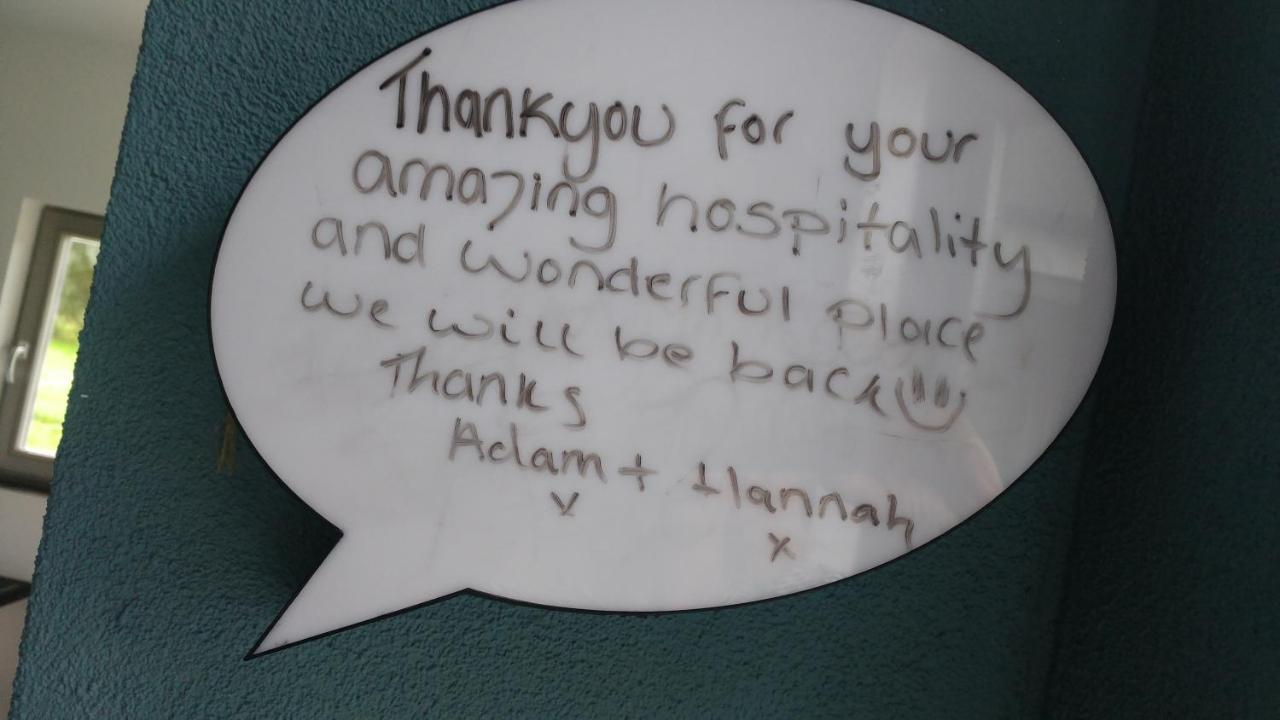 Thankyou for your
amazing hospitality
and wonderful place
we will be back
Thanks
Adam + Hannah
x x